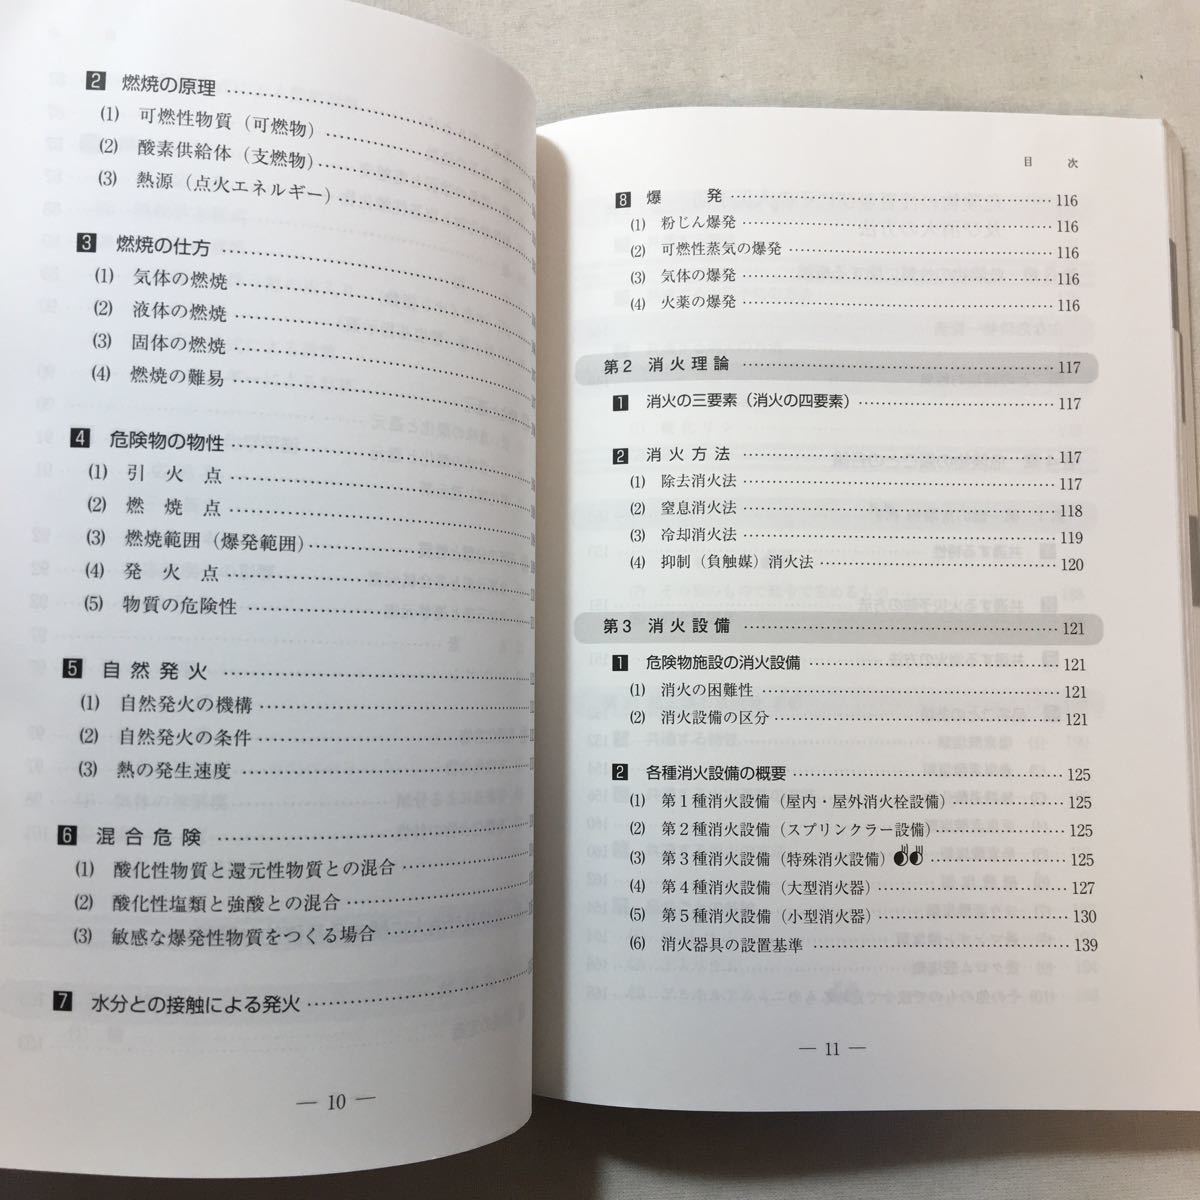 2 燃焼の原理
(1) 可燃性物質（可燃物）
(2) 酸素供給体（支燃物）
(3) 熱源（点火エネルギー）
3 燃焼の仕方
(1) 気体の燃焼
(2) 液体の燃焼
(3) 固体の燃焼
(4) 燃焼の難易
4 危険物の物性
(1) 引火点
(2) 燃焼点
(3) 燃焼範囲（爆発範囲）
(4) 発火点
(5) 物質の危険性
5 自然発火
(1) 自然発火の機構
(2) 自然発火の条件
(3) 熱の発生速度
6 混合危険
(1) 酸化性物質と還元性物質との混合
(2) 酸化性塩類と強酸との混合
(3) 敏感な爆発性物質をつくる場合
7 水分との接触による発火
— 10 —
目次
8 爆発 116
(1) 粉じん爆発 116
(2) 可燃性蒸気の爆発 116
(3) 気体の爆発 116
(4) 火薬の爆発 116
第2 消火理論 117
1 消火の三要素（消火の四要素） 117
2 消火方法 117
(1) 除去消火法 117
(2) 窒息消火法 118
(3) 冷却消火法 119
(4) 抑制（負触媒）消火法 120
第3 消火設備 121
1 危険物施設の消火設備 121
(1) 消火の困難性 121
(2) 消火設備の区分 121
2 各種消火設備の概要 125
(1) 第1種消火設備（屋内・屋外消火栓設備） 125
(2) 第2種消火設備（スプリンクラー設備） 125
(3) 第3種消火設備（特殊消火設備） 125
(4) 第4種消火設備（大型消火器） 127
(5) 第5種消火設備（小型消火器） 130
(6) 消火器具の設置基準 139
— 11 —